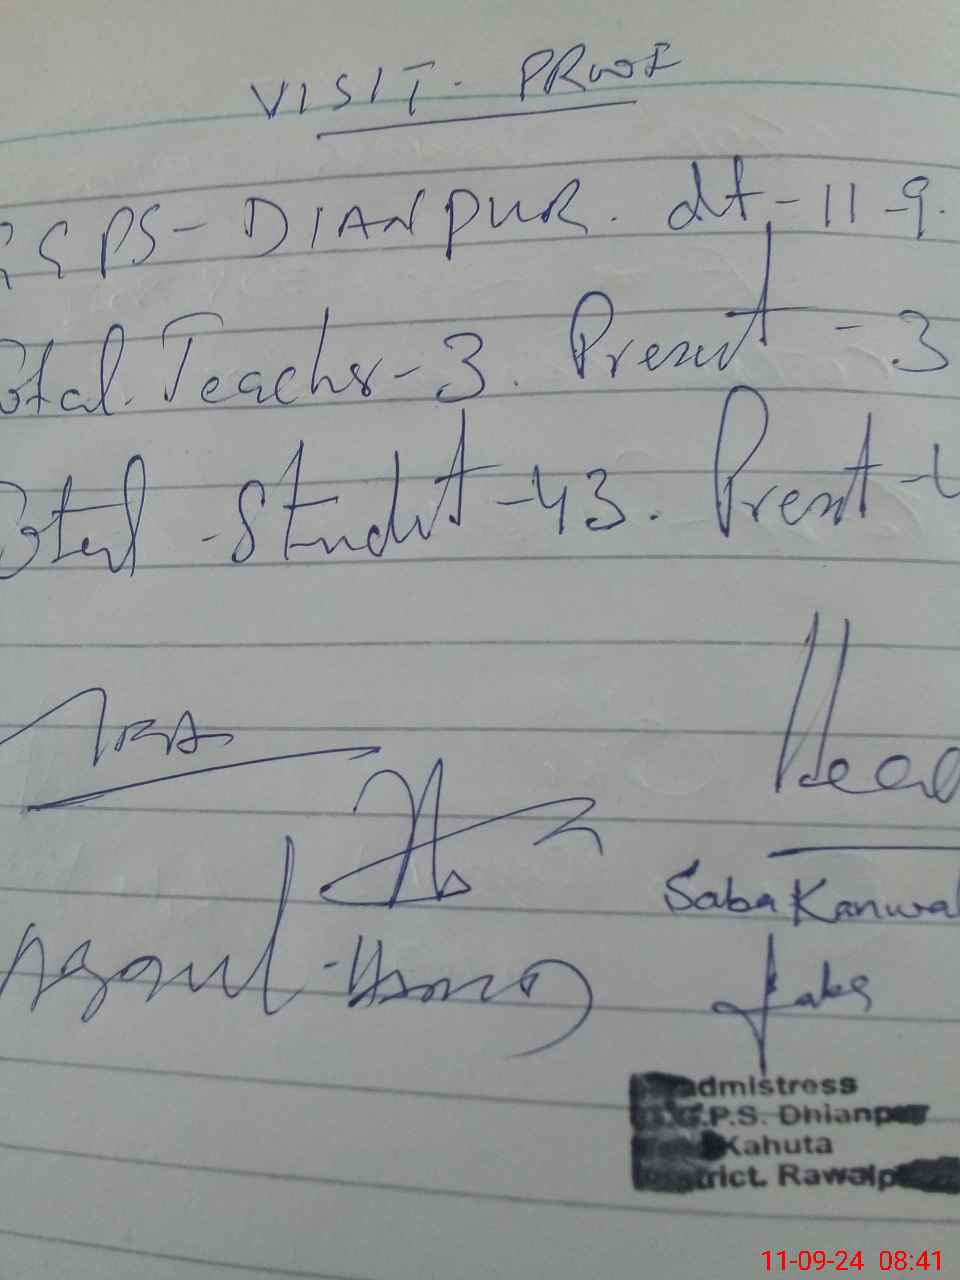 VISIT. PROOF
GGPS - DIANPUR. dt - 11-9.
Total. Teachr - 3. Present - 3
Total - Studnt - 43. Present - 4
Head
Saba Kanwal
Saba
admistress
G.P.S. Dhianpur
Kahuta
strict. Rawalp
11-09-24 08:41